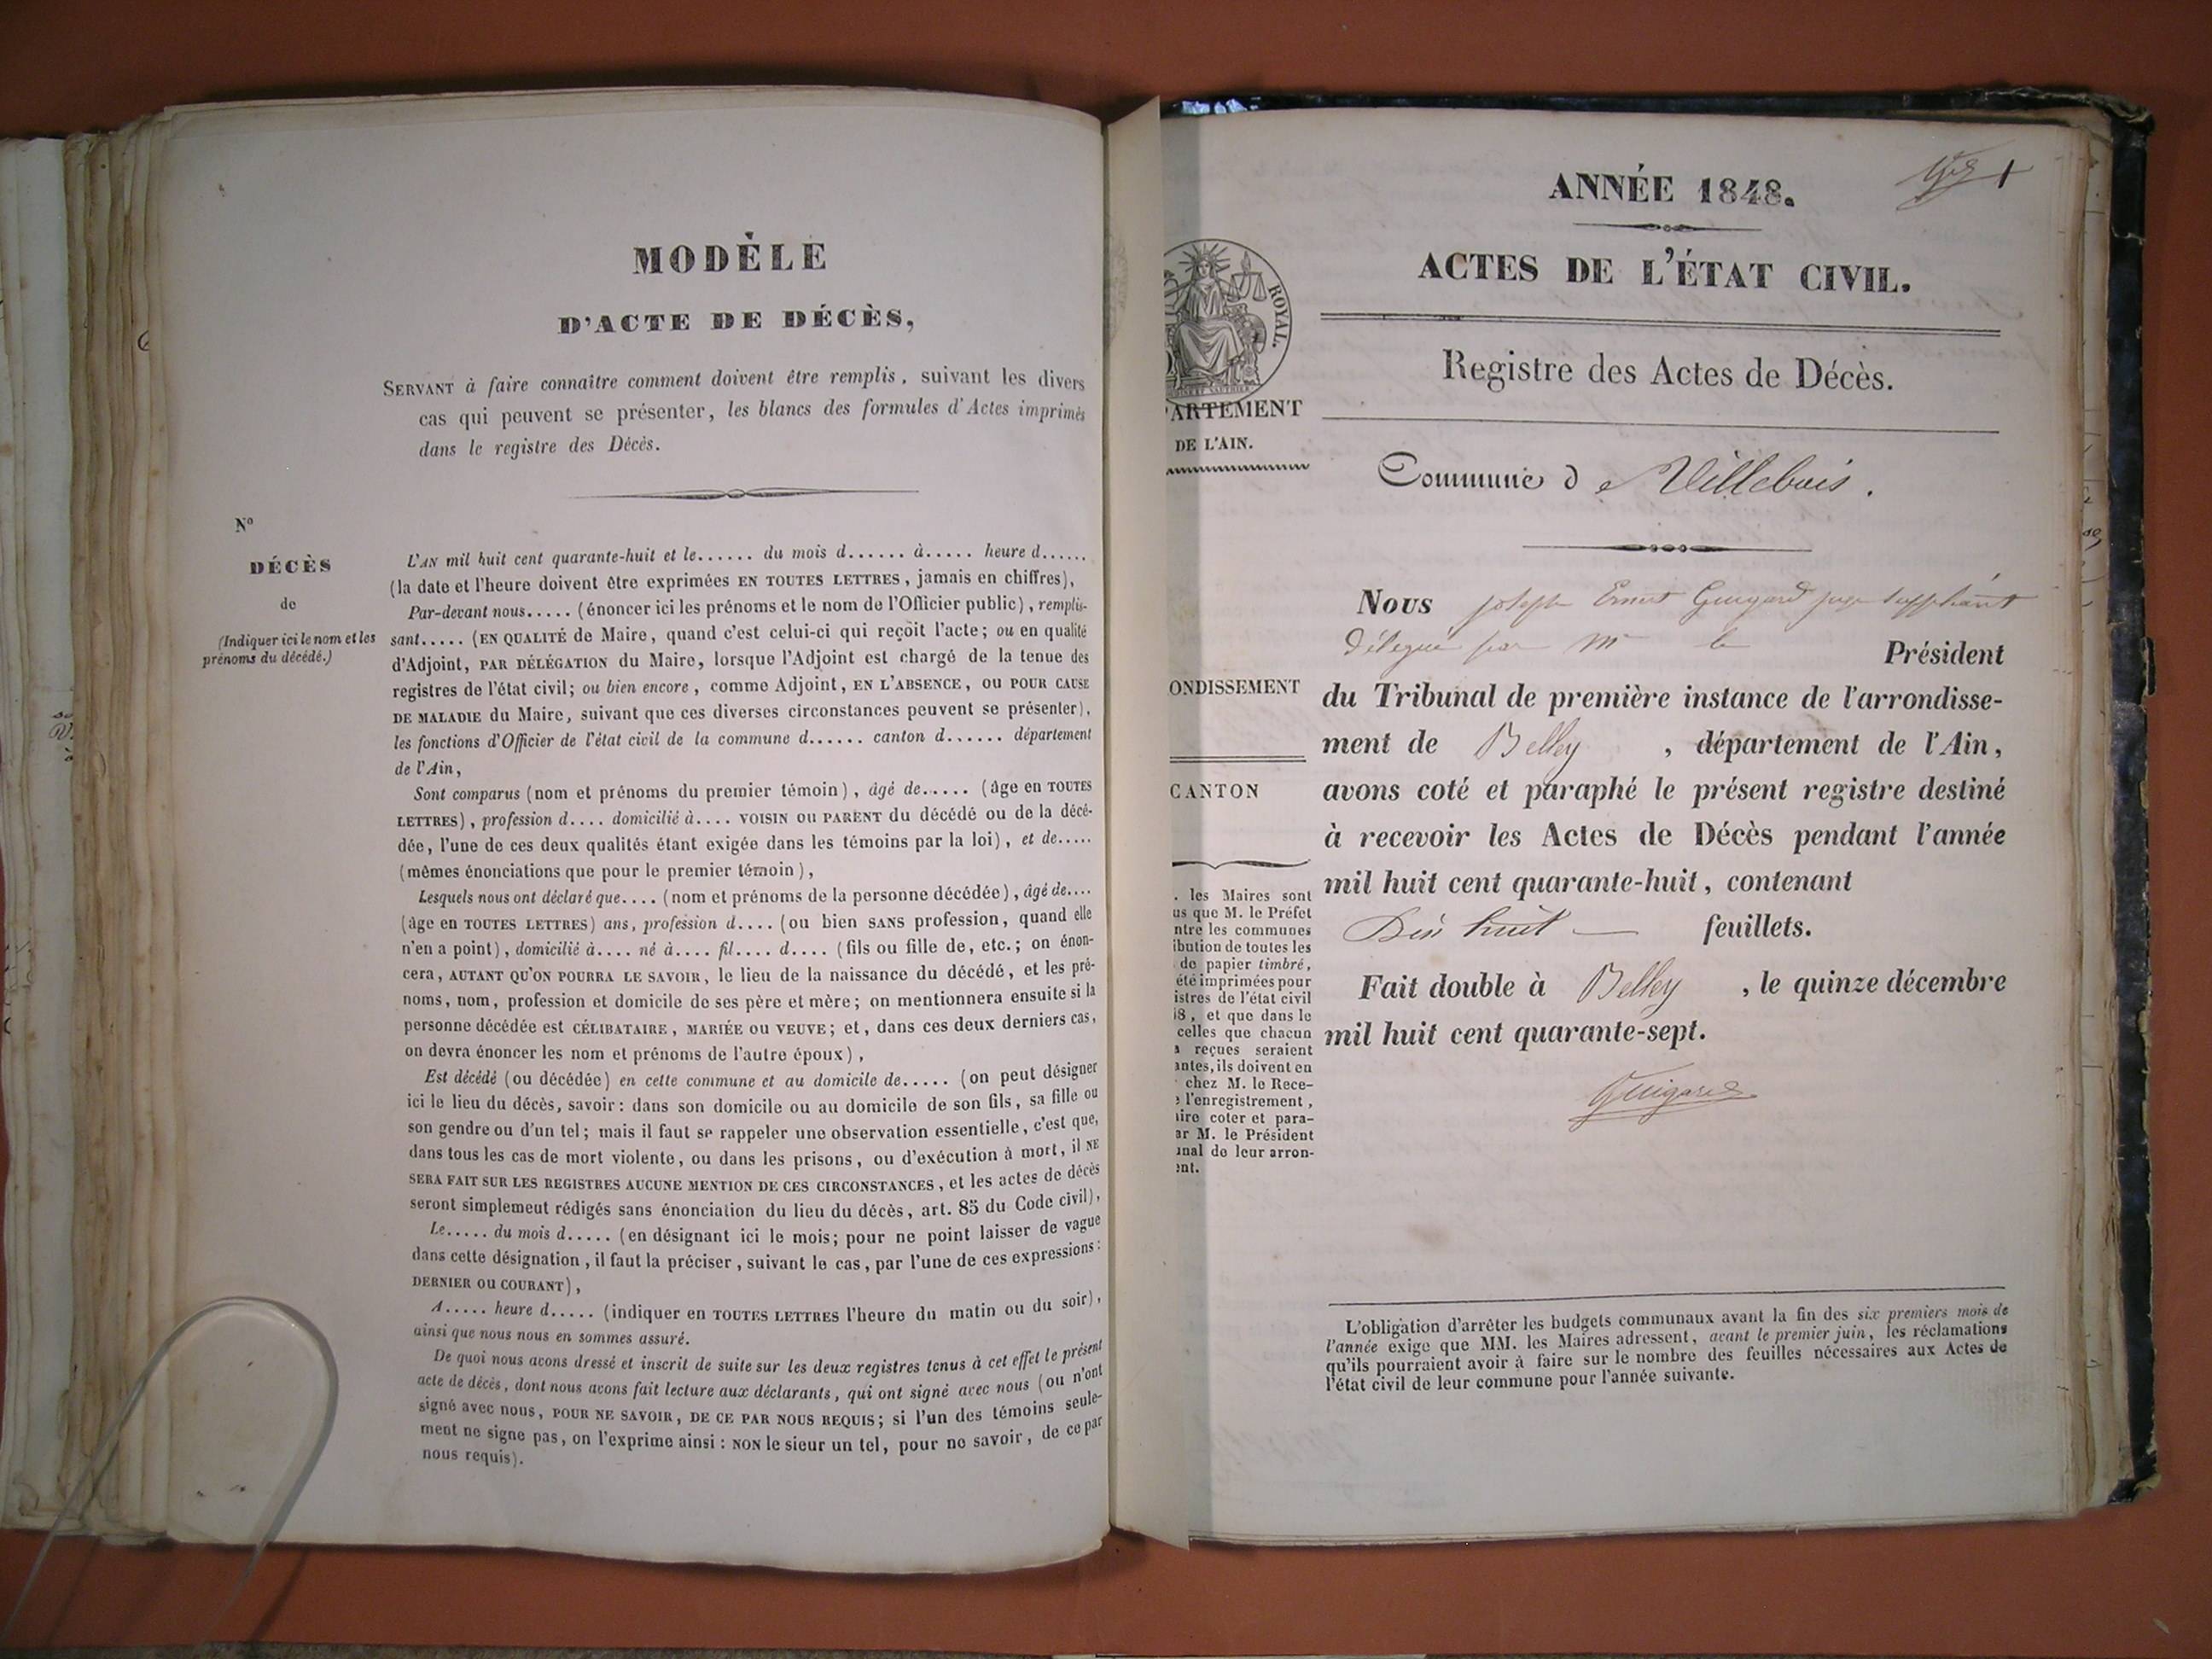 MODÈLE
D'ACTE DE DÉCÈS,
SERVANT à faire connaître comment doivent être remplis, suivant les divers
cas qui peuvent se présenter, les blancs des formules d'Actes imprimés
dans le registre des Décès.
N°
DÉCÈS
de
(Indiquer ici le nom et les
prénoms du décédé.)
L'AN mil huit cent quarante-huit et le...... du mois d...... à..... heure d......
(la date et l'heure doivent être exprimées EN TOUTES LETTRES, jamais en chiffres),
Par-devant nous..... (énoncer ici les prénoms et le nom de l'Officier public), remplis-
sant..... (EN QUALITÉ de Maire, quand c'est celui-ci qui reçoit l'acte; ou en qualité
d'Adjoint, PAR DÉLÉGATION du Maire, lorsque l'Adjoint est chargé de la tenue des
registres de l'état civil; ou bien encore, comme Adjoint, EN L'ABSENCE, OU POUR CAUSE
DE MALADIE du Maire, suivant que ces diverses circonstances peuvent se présenter),
les fonctions d'Officier de l'état civil de la commune d...... canton d...... département
de l'Ain,
Sont comparus (nom et prénoms du premier témoin), âgé de..... (âge en TOUTES
LETTRES), profession d.... domicilié à.... VOISIN OU PARENT du décédé ou de la décé-
dée, l'une de ces deux qualités étant exigée dans les témoins par la loi), et de.....
(mêmes énonciations que pour le premier témoin),
Lesquels nous ont déclaré que.... (nom et prénoms de la personne décédée), âgé de....
(âge en TOUTES LETTRES) ans, profession d.... (ou bien SANS profession, quand elle
n'en a point), domicilié à.... né à.... fil.... d.... (fils ou fille de, etc.; on énon-
cera, AUTANT QU'ON POURRA LE SAVOIR, le lieu de la naissance du décédé, et les pré-
noms, nom, profession et domicile de ses père et mère; on mentionnera ensuite si la
personne décédée est CÉLIBATAIRE, MARIÉE OU VEUVE; et, dans ces deux derniers cas,
on devra énoncer les nom et prénoms de l'autre époux),
Est décédé (ou décédée) en cette commune et au domicile de..... (on peut désigner
ici le lieu du décès, savoir: dans son domicile ou au domicile de son fils, sa fille ou
son gendre ou d'un tel; mais il faut se rappeler une observation essentielle, c'est que,
dans tous les cas de mort violente, ou dans les prisons, ou d'exécution à mort, il NE
SERA FAIT SUR LES REGISTRES AUCUNE MENTION DE CES CIRCONSTANCES, et les actes de décès
seront simplemeut rédigés sans énonciation du lieu du décès, art. 85 du Code civil),
Le..... du mois d..... (en désignant ici le mois; pour ne point laisser de vague
dans cette désignation, il faut la préciser, suivant le cas, par l'une de ces expressions:
DERNIER OU COURANT),
A..... heure d..... (indiquer en TOUTES LETTRES l'heure du matin ou du soir),
ainsi que nous nous en sommes assuré.
De quoi nous avons dressé et inscrit de suite sur les deux registres tenus à cet effet le présent
acte de décès, dont nous avons fait lecture aux déclarants, qui ont signé avec nous (ou n'ont
signé avec nous, POUR NE SAVOIR, DE CE PAR NOUS REQUIS; si l'un des témoins seule-
ment ne signe pas, on l'exprime ainsi: NON le sieur un tel, pour ne savoir, de ce par
nous requis).
ANNÉE 1848.
1
ACTES DE L'ÉTAT CIVIL.
Registre des Actes de Décès.
ROYAL.
PARTEMENT
DE L'AIN.
Commune de Villebois.
ONDISSEMENT
CANTON
. les Maires sont
us que M. le Préfet
ntre les communes
ibution de toutes les
de papier timbré,
été imprimées pour
istres de l'état civil
18, et que dans le
celles que chacun
a reçues seraient
antes, ils doivent en
chez M. le Rece-
e l'enregistrement,
aire coter et para-
ar M. le Président
unal de leur arron-
ent.
Nous joseph Ernest Guigard juge suppléant
délégué par Mr le Président
du Tribunal de première instance de l'arrondisse-
ment de Belley, département de l'Ain,
avons coté et paraphé le présent registre destiné
à recevoir les Actes de Décès pendant l'année
mil huit cent quarante-huit, contenant
Dix huit feuillets.
Fait double à Belley, le quinze décembre
mil huit cent quarante-sept.
Guigard
L'obligation d'arrêter les budgets communaux avant la fin des six premiers mois de
l'année exige que MM. les Maires adressent, avant le premier juin, les réclamations
qu'ils pourraient avoir à faire sur le nombre des feuilles nécessaires aux Actes de
l'état civil de leur commune pour l'année suivante.